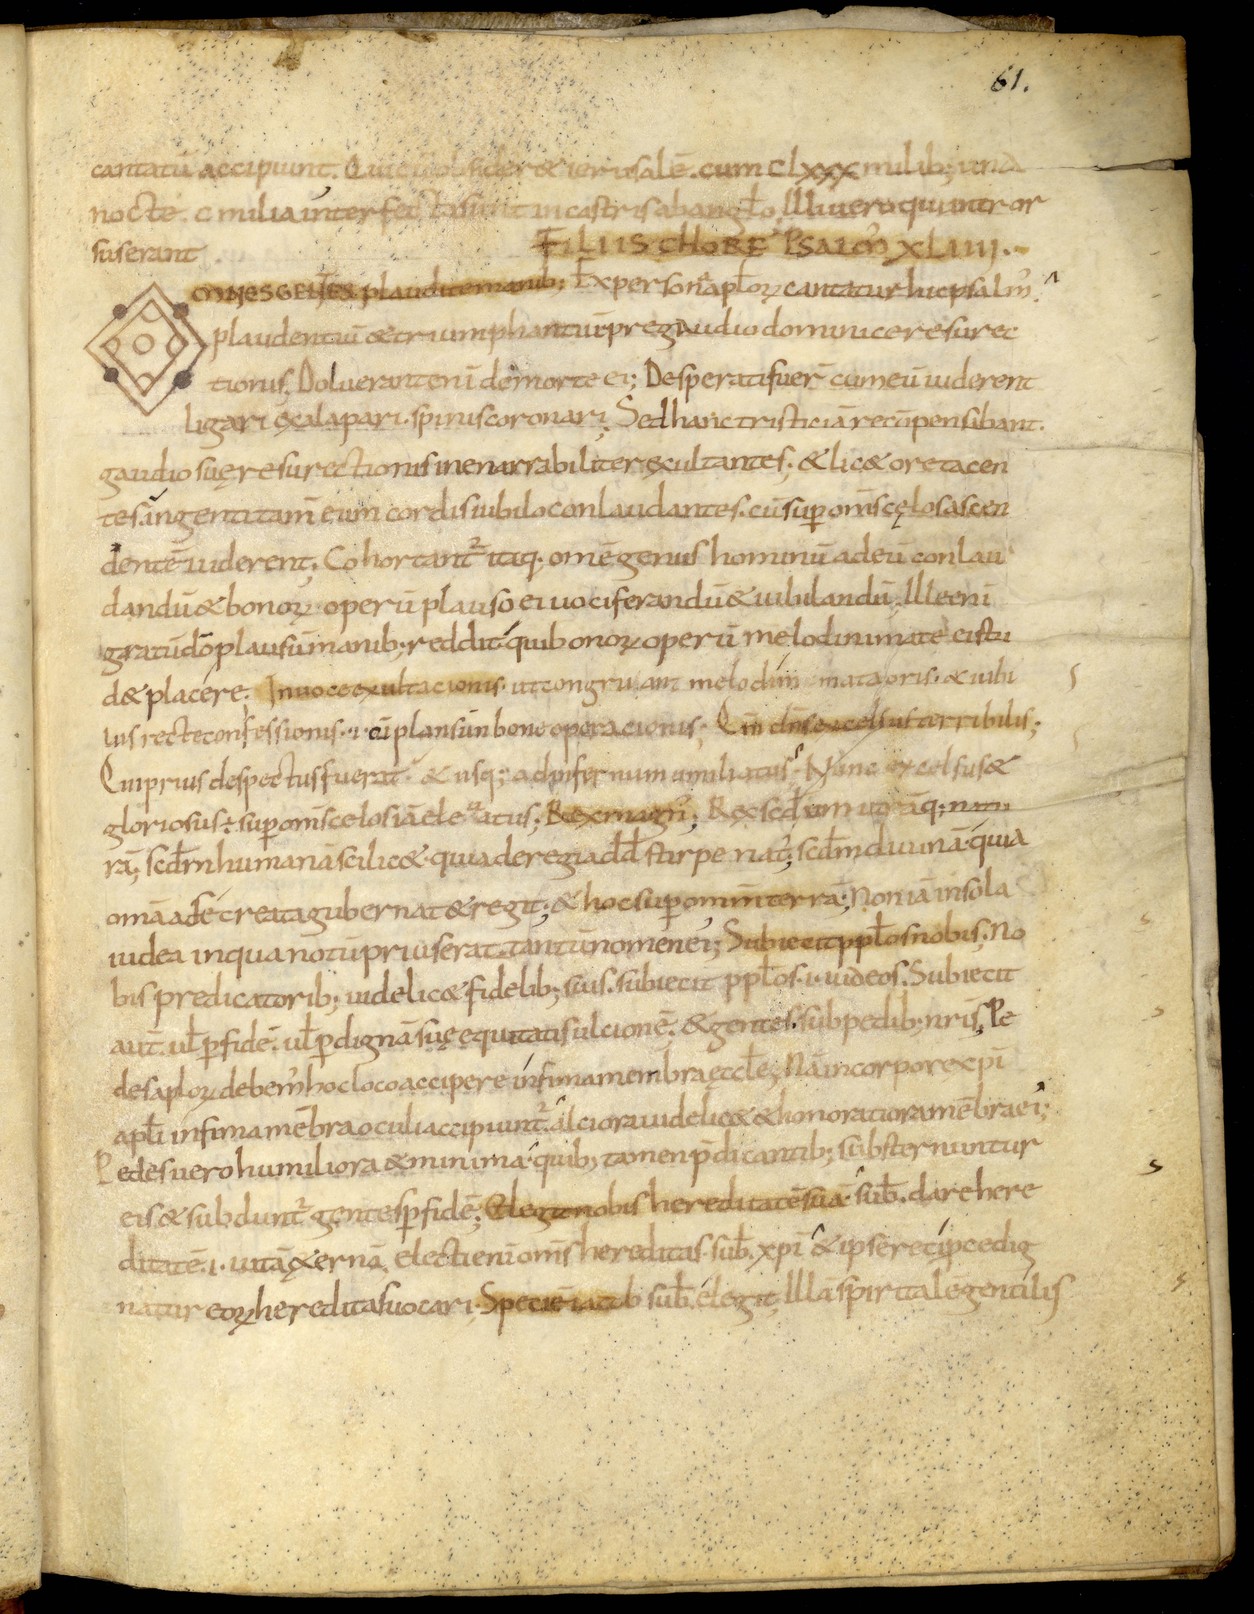 61.
cantatū accipiunt. Qui cū obsider& ierusalē. cum clxxx milib; una
nocte. c milia interfecta sunt in castris ab anglo. Illi uero qui intror
sus erant FILIIS CHORE PSALM XLVI.
OMNES GENTES plaudite manib; Ex persona aplorꝝ cantatur hic psalm̄.
plaudentiū & triumphantiū pre gaudio dominice resurec
tionis; Doluerant enī de morte ei; Desperati fuer̄ cum eū uiderent
ligari & calapari. spinis coronari; Sed hanc tristiciā recūpensabant.
gaudio suę resurectionis inenarrabiliter exultantes. & lic& ore tacen
tes. ingenti tam̄ eum cordis iubilo conlaudantes. cū sup om̄s cęlos ascen
dentē uiderent; Cohortant̄ itaq. omē genus hominū ad eū conlau
dandū & bonoꝝ operū plauso ei uociferandū & iubilandū. Ille enī
gratū dō plausū manib; reddit qui bonoꝝ operū melodin
d& placere. In uoce exultacionis. ut congruant melodin̄ oris. & iubi
lus recte confessionis. i. ei plausū in bone operacionis; Qm̄ dn̄s excelsus terribilis;
Qui prius despectus fuerat. & usq; ad infernum umiliatus. Nunc excelsus &
gloriosus ÷ sup om̄s celos iā eleuatus; Rex magn; Rex scdm utrāq; natu
rā; scdm humanā scilic& quia de regia dd stirpe nat; scdm diuinā quia
omā a se creata gubernat & regit; & hoc sup omnem terrā; Non iā in sola
iudea in qua notū prius erat tantū nomen ei; Subiecit pplos nobis. No
bis predicatorib; uidelic& fidelib; suis. subiecit pplos. i. iudeos. Subiecit
aut. ul p fidē. ul p dignā suę equitatis ulcionē. & gentes sub pedib; nris; Pe
des aploꝝ debem̄ hoc loco accipere infima membra ęccle; Nā in corpore xpi
apli infima mēbra oculi accipiunt. alciora uidelic& & honoratiora mēbra ei;
Pedes uero humiliora & minima. quib; tamen p̄dicantib; substernuntur
eis & subdunt gentes p fidē; Elegit nobis hereditatē suā. sub. dare here
ditatē. i. uitā &ernā. electi enī om̄s hereditas sub. xpi & ipse recipcę dig
natur eoꝝ hereditas uocari. Speciē iacob sub. elegit; Illā spiritale gentilis